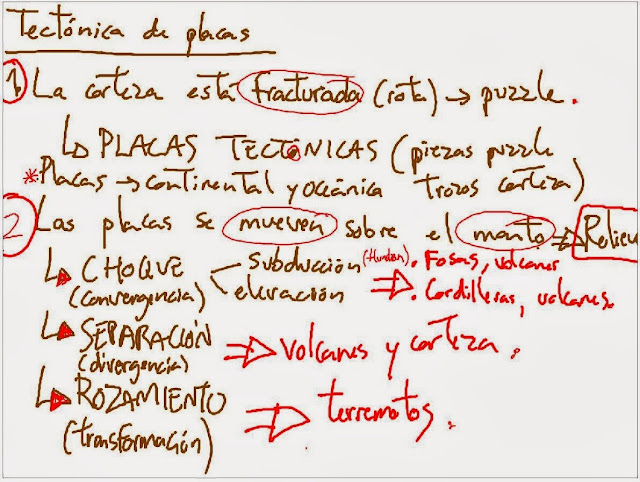 Tectónica de placas
1. La corteza está fracturada (rota) → puzzle.
↳ PLACAS TECTÓNICAS (piezas puzzle
* Placas → continental y oceánica trozos corteza)
2 Las placas se mueven sobre el manto ⇒ Reliev
↳ CHOQUE subducción (Hunden) . Fosas, volcanes
(convergencia) elevación ⇒ . Cordilleras, volcanes.
↳ SEPARACIÓN ⇒ volcanes y corteza.
(divergencia)
↳ ROZAMIENTO ⇒ terremotos.
(transformación)